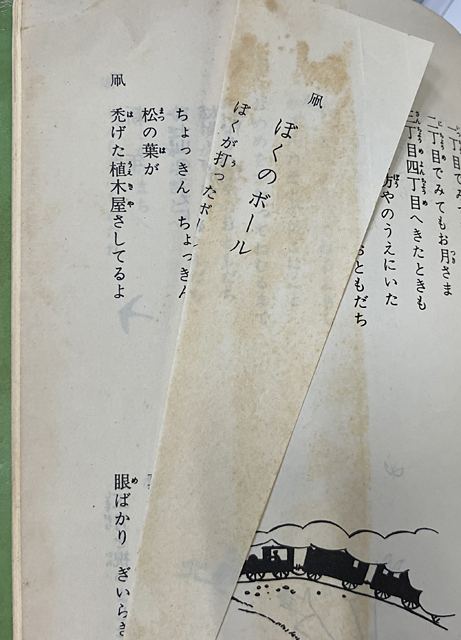 二丁目でみてもお月さま
三丁目四丁目へきたときも
やのうえにいた
ともだち
凧
ぼくのボール
ぼくが打ったボ
ちょっきん ちょっきん
松の葉が
禿げた植木屋さしてるよ
眼ばかり ぎいらぎ
凧